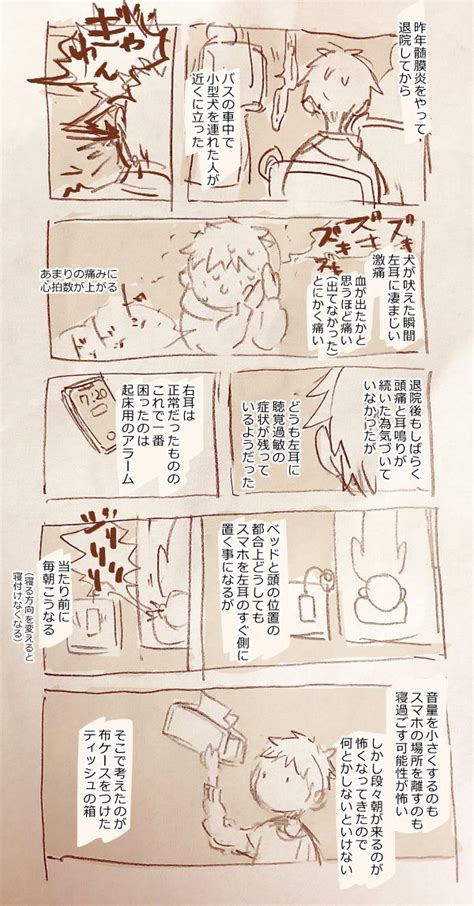 昨年髄膜炎をやって、
退院してから
バスの車中で
小型犬を連れた人が
近くに立った
ぎゃ
わん
ズキ
ズキ
ズキ
犬が吠えた瞬間
左耳に凄まじい
激痛
血が出たかと
思うほど痛い
（出てなかった）
とにかく痛い
あまりの痛みに
心拍数が上がる
退院後もしばらく
頭痛と耳鳴りが
続いた為気づいて
いなかったが
どうも左耳に
聴覚過敏の
症状が残って
いるようだった
右耳は
正常だったものの
これで一番
困ったのは
起床用のアラーム
7:20
ベッドと頭の位置の
都合上どうしても
スマホを左耳のすぐ側に
置く事になるが
当たり前に
毎朝こうなる
（寝る方向を変えると
寝付けなくなる）
音量を小さくするのも
スマホの場所を離すのも
寝過ごす可能性が怖い
しかし段々朝が来るのが
怖くなってきたので
何とかしないといけない
そこで考えたのが
布ケースをつけた
ティッシュの箱